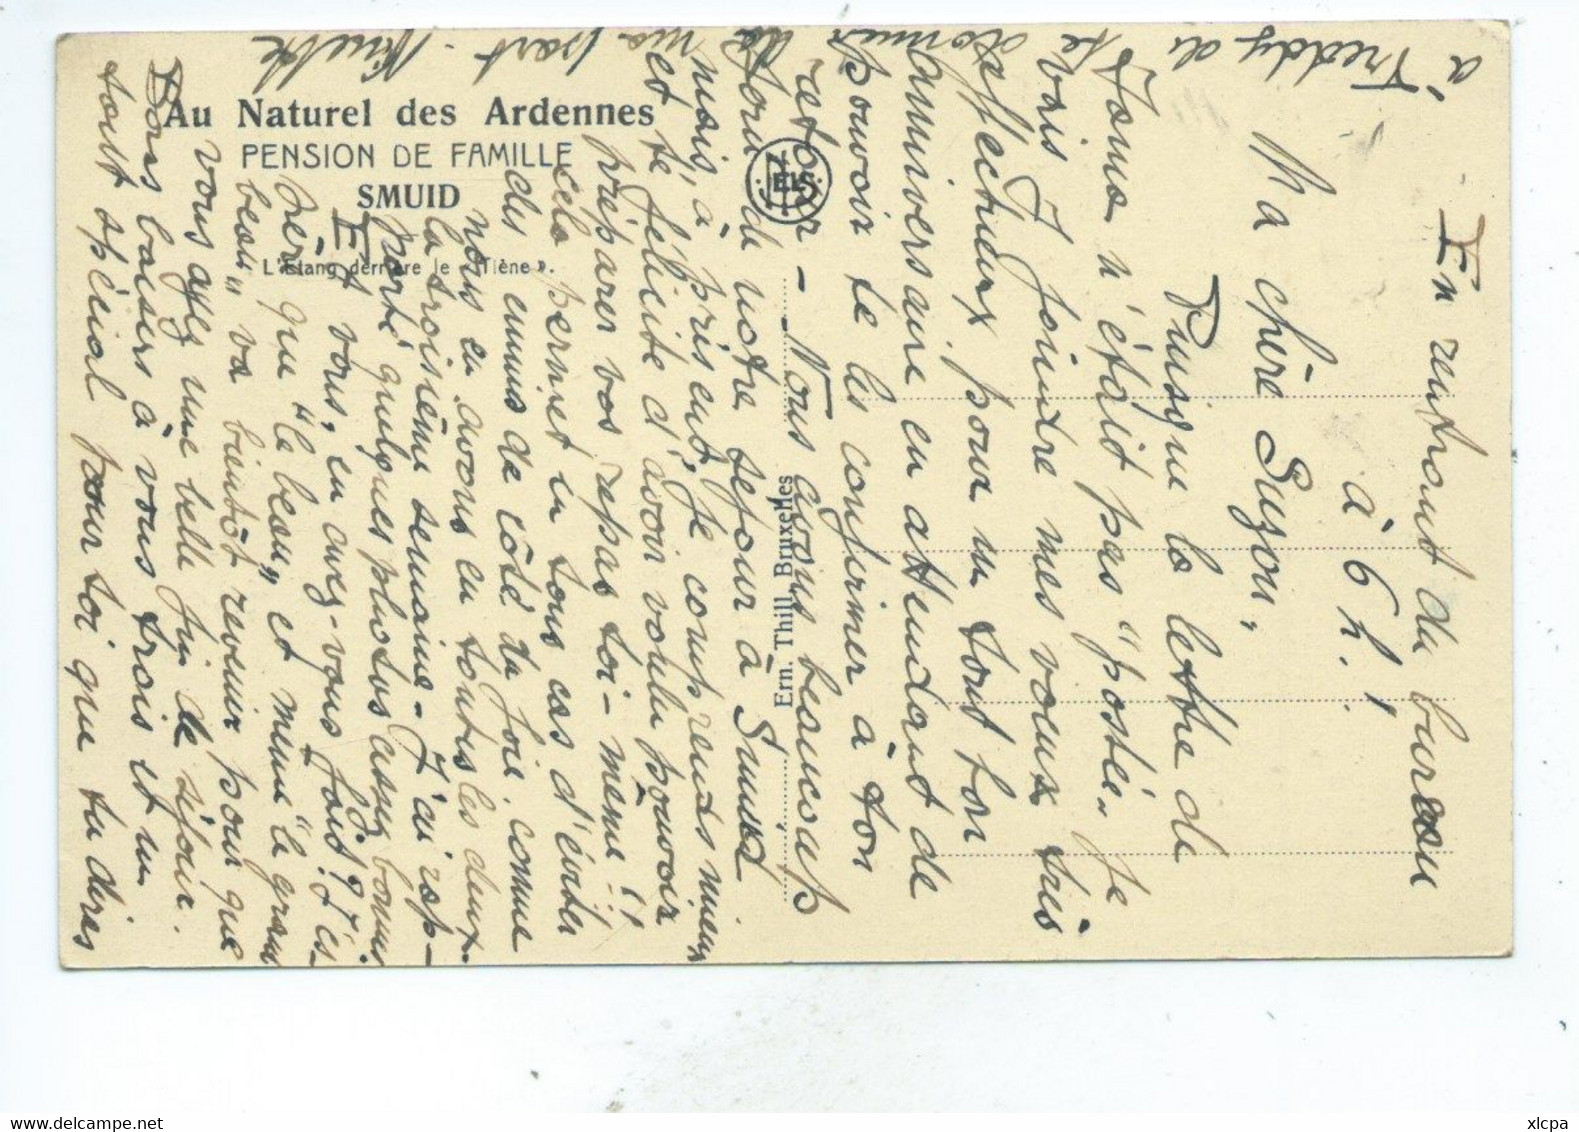 Au Naturel des Ardennes
PENSION DE FAMILLE
SMUID
L'Etang derrière le « Tiène ».
NELS
Ern. Thill Bruxelles
En rentrant du bureau
à 6 h. !
Ma chère Suzon,
Puisque la lettre de
Moma n'était pas "postée" je
vais y joindre mes voeux très
affectueux pour un tout bon
anniversaire en attendant de
pouvoir te les confirmer à ton
retour – Nous avons beaucoup
de votre séjour à Smuid
mais, à présent, je comprends mieux
et te félicite d'avoir voulu pouvoir
préparer vos repas toi-même !!
cela permet en tous cas d'éviter
des ennuis de côté du foie comme
nous en avons eu toutes les deux
la troisième semaine – J'ai rap-
porté quelques photos assez bonnes
Et vous, en avez-vous fait ? J'es-
père que "le beau" et même "le grand
beau" va bientôt revenir pour que
vous ayez une belle fin de séjour.
Bons baisers à vous trois et un
tout spécial pour toi que tu diras
à Freddy de te donner de ma part.